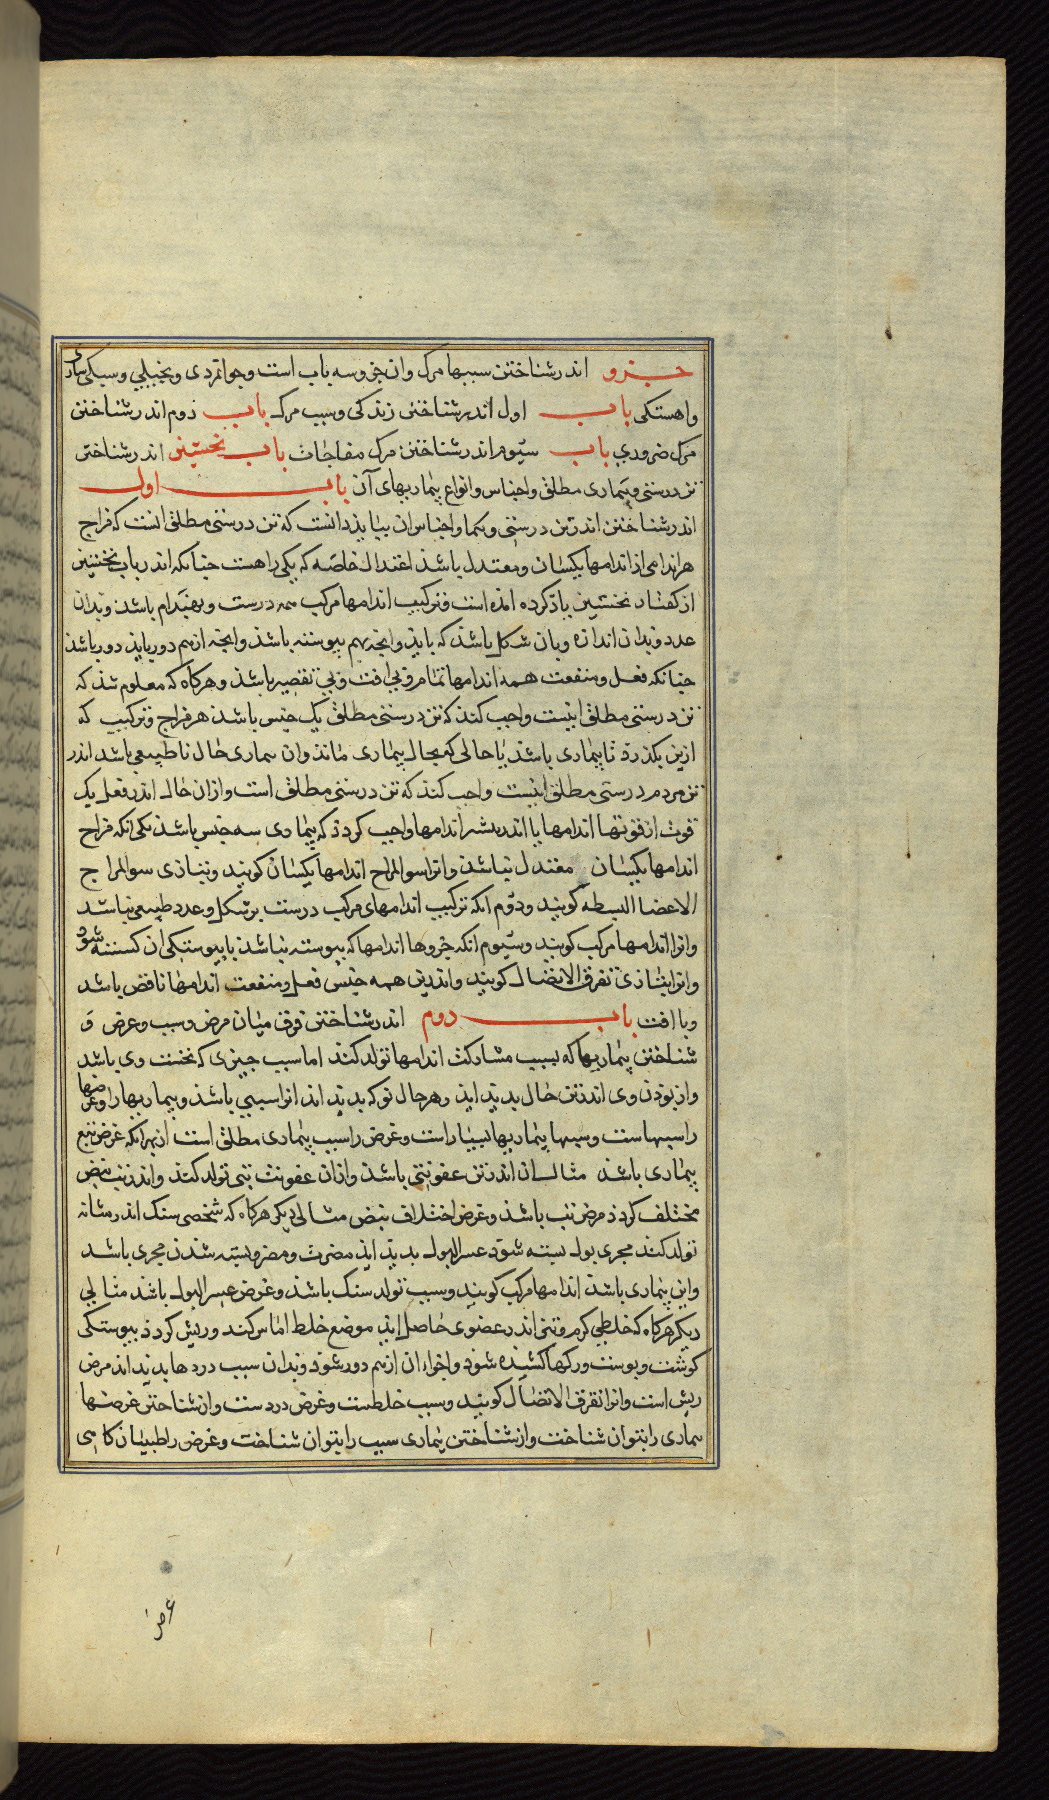 جزو اندر شناختن سببها مرک وان جزو سه باب است وجوانمردی وبخیلی وسبکی ساری
واهستکی باب اول اندر شناختن زندکی وسبب مرک باب ذوم اندر شناختن
مرک ضروری باب سیّوم اندر شناختن مرک مفاجات باب نخستین اندر شناختن
تن درستی وبیماری مطلق واجناس وانواع بیماریهای آن باب اول
اندر شناختن اندرین درستی واجناس ان بباید دانست که تن درستی مطلق انست که مزاج
هر اندامی از اندامها یکسان ومعتدل باشذ اعتدال خاصّه که یکی راهست جنانکه اندر باب نخستین
از کفتار نخستین یاد کرده امده است وترکیب اندامها مرکب همه درست وبهندام باشذ وبدان
عدد وبدان اندازه وبان شکل باشذ که بایذ وانجه بهم بیوسته باشذ وانجه ازهم دور بایذ دور باشذ
جنانکه فعل ومنفعت همه اندامها تمام وبی افت وبی تقصیر باشذ وهرکاه که معلوم شذ که
تن درستی مطلق اینست واجب کنذ که تن درستی مطلق یک جنس باشذ هر مزاج وترکیب که
ازین بکذرد تا بیماری باشذ یا حالی که بحال بیماری ماند وان بیماری حال ناطبیعی باشد اندر
تن مردم درستی مطلق اینست واجب کنذ که تن درستی مطلق است وازان حال اندر فعل یک
قوت از قوتها اندامها یا اندر بیشتر اندامها واجب کردذ که بیماری سه جنس باشذ یکی انکه مزاج
اندامها یکسان معتدل نباشذ وانرا سوالمزاج اندامها یکسان کویند وبتازی سوالمزاج
الاعضا البسیطه کویند ودوّم انکه ترکیب اندامهای مرکب درست بر شکل وعدد طبیعی نباشد
وانرا اندامها مرکب کویند وسیّوم انکه جزوها اندامها که بیوسته نباشذ یا بیوستکی ان کسسته شود
وانرا بتازی تفرق الاتصال کویند واندرین همه جنس فعل ومنفعت اندامها ناقص باشد
وباافت باب دوم اندر شناختن فرق میان مرض وسبب وعرض وَ
شناختن بیماریها که بسبب مشارکت اندامها تولد کند اما سبب جیزی که نخست وی باشد
واز بوذن وی اندرتن حال بدید اید وهر حال نوکه بدید اید انرا سببی باشذ وبیماریها را وعرضها
را سببهاست وسببها بیماریها بسیاراست وعرض را سبب بیماری مطلق است ازبهرانکه عرض تبع
بیماری باشذ مثال ان اندرتن عفونتی باشذ وازان عفونت تبی تولد کنذ واندر تب نبض
مختلف کردذ مرض تب باشذ وعرض اختلاف نبض مثالی دیکر هرکاه که شخصی سنک اندر مثانه
تولد کند مجری بول بسته شود عسر البول بدید اید مضرت ومضر وبسته شدن مجری باشد
واین بیماری باشذ اندامها مرکب کویند وسبب تولد سنک باشذ وعرض عسر البول باشذ مثالی
دیکر هرکاه که خلطی کرم وتیز اندر عضوی حاصل اید موضع خلط اماس کند وریش کردذ بیوستکی
کوشت وبوست ورکها کشیده شود واجزاء ان ازهم دور شود وبدان سبب دردها بدید اید مرض
ریش است وانرا تفرق الاتصال کویند وسبب خلطست وعرض دردست وازشناختن عرضها
بیماری را بتوان شناخت وازشناختن بیماری سبب را بتوان شناخت وعرض را طبیبان کاهی
عرض